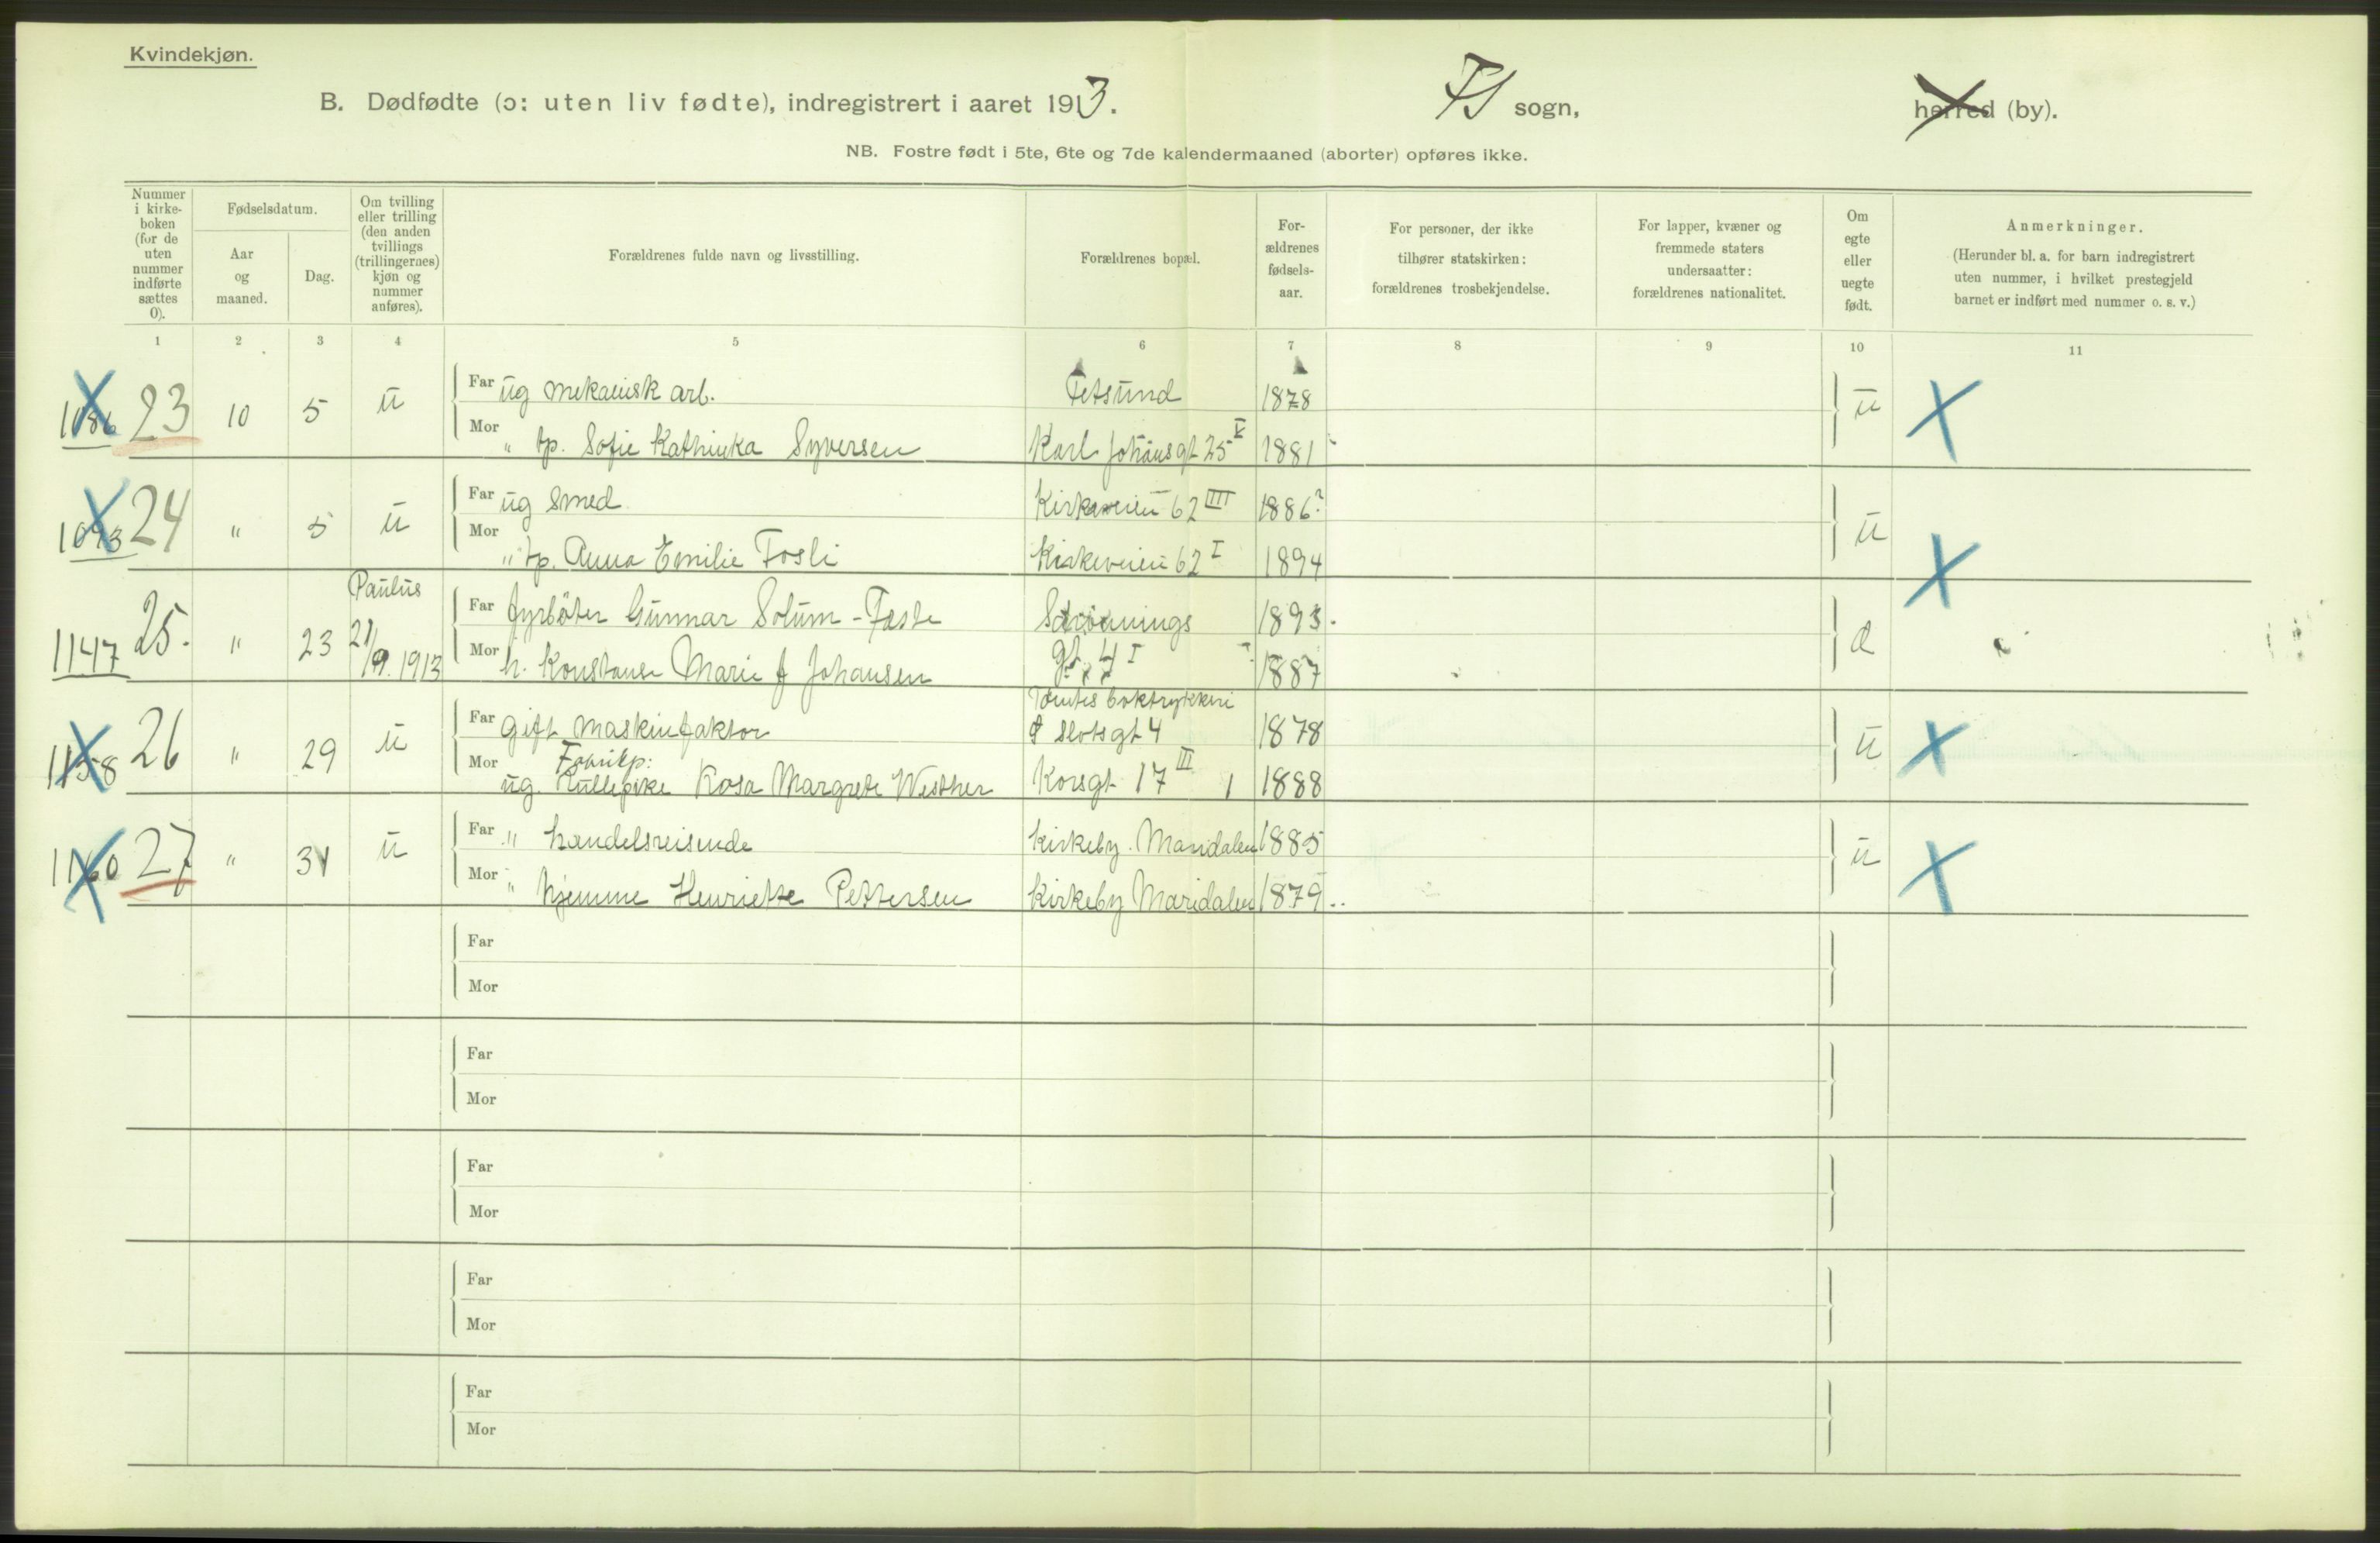 Kvindekjøn.
B. Dødfødte (ɔ: uten liv fødte), indregistrert i aaret 1913.
FS sogn,
herred (by).
NB. Fostre født i 5te, 6te og 7de kalendermaaned (aborter) opføres ikke.
Nummer i kirke-boken (for de uten nummer indførte sættes 0).
Fødselsdatum.
Aar og maaned.
Dag.
Om tvilling eller trilling (den anden tvillings (trillingernes) kjøn og nummer anføres).
Forældrenes fulde navn og livsstilling.
Forældrenes bopæl.
For-ældrenes fødsels-aar.
For personer, der ikke tilhører statskirken: forældrenes trosbekjendelse.
For lapper, kvæner og fremmede staters undersaatter: forældrenes nationalitet.
Om egte eller uegte født.
Anmerkninger.
(Herunder bl. a. for barn indregistrert uten nummer, i hvilket prestegjeld barnet er indført med nummer o. s. v.)
1 2 3 4 5 6 7 8 9 10 11
1086 23 10 5 u Far ug mekanisk arb. Fetsund 1878 u
Mor " tp. Sofie Kathinka Syversen Karl Johans gt 25 V 1881
1093 24 " 5 u Far ug smed Kirkeveien 62 IIII 1886? u
Mor " tp. Anna Emilie Fosli Kirkeveien 62 I 1894
Paulus
1147 25. " 23 21/9. 1913 Far fyrbøter Gunnar Solum - 1893. e
Mor h. Konstanse Marie f Johansen gt. 4 I 1887
boktrykkeri
1158 26 " 29 u Far gift maskinfaktor Slotsgt 4 1878 u
Fabrikp:
Mor ug. Rullepike Rosa Margrete Westher Korsgt 17 III 1888
1160 27 " 31 u Far " handelsreisende Kirkeby. Maridalen 1885 u
Mor " hjemme Henriette Pettersen Kirkeby Maridalen 1879
Far
Mor
Far
Mor
Far
Mor
Far
Mor
Far
Mor